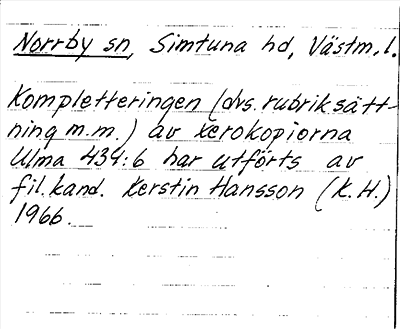 Norrby sn, Simtuna hd, Västm.l.
Kompletteringen (dvs. rubriksätt-
ning m.m.) av xerokopiorna
Ulma 434:6 har utförts av
fil.kand. Kerstin Hansson (K.H.)
1966.